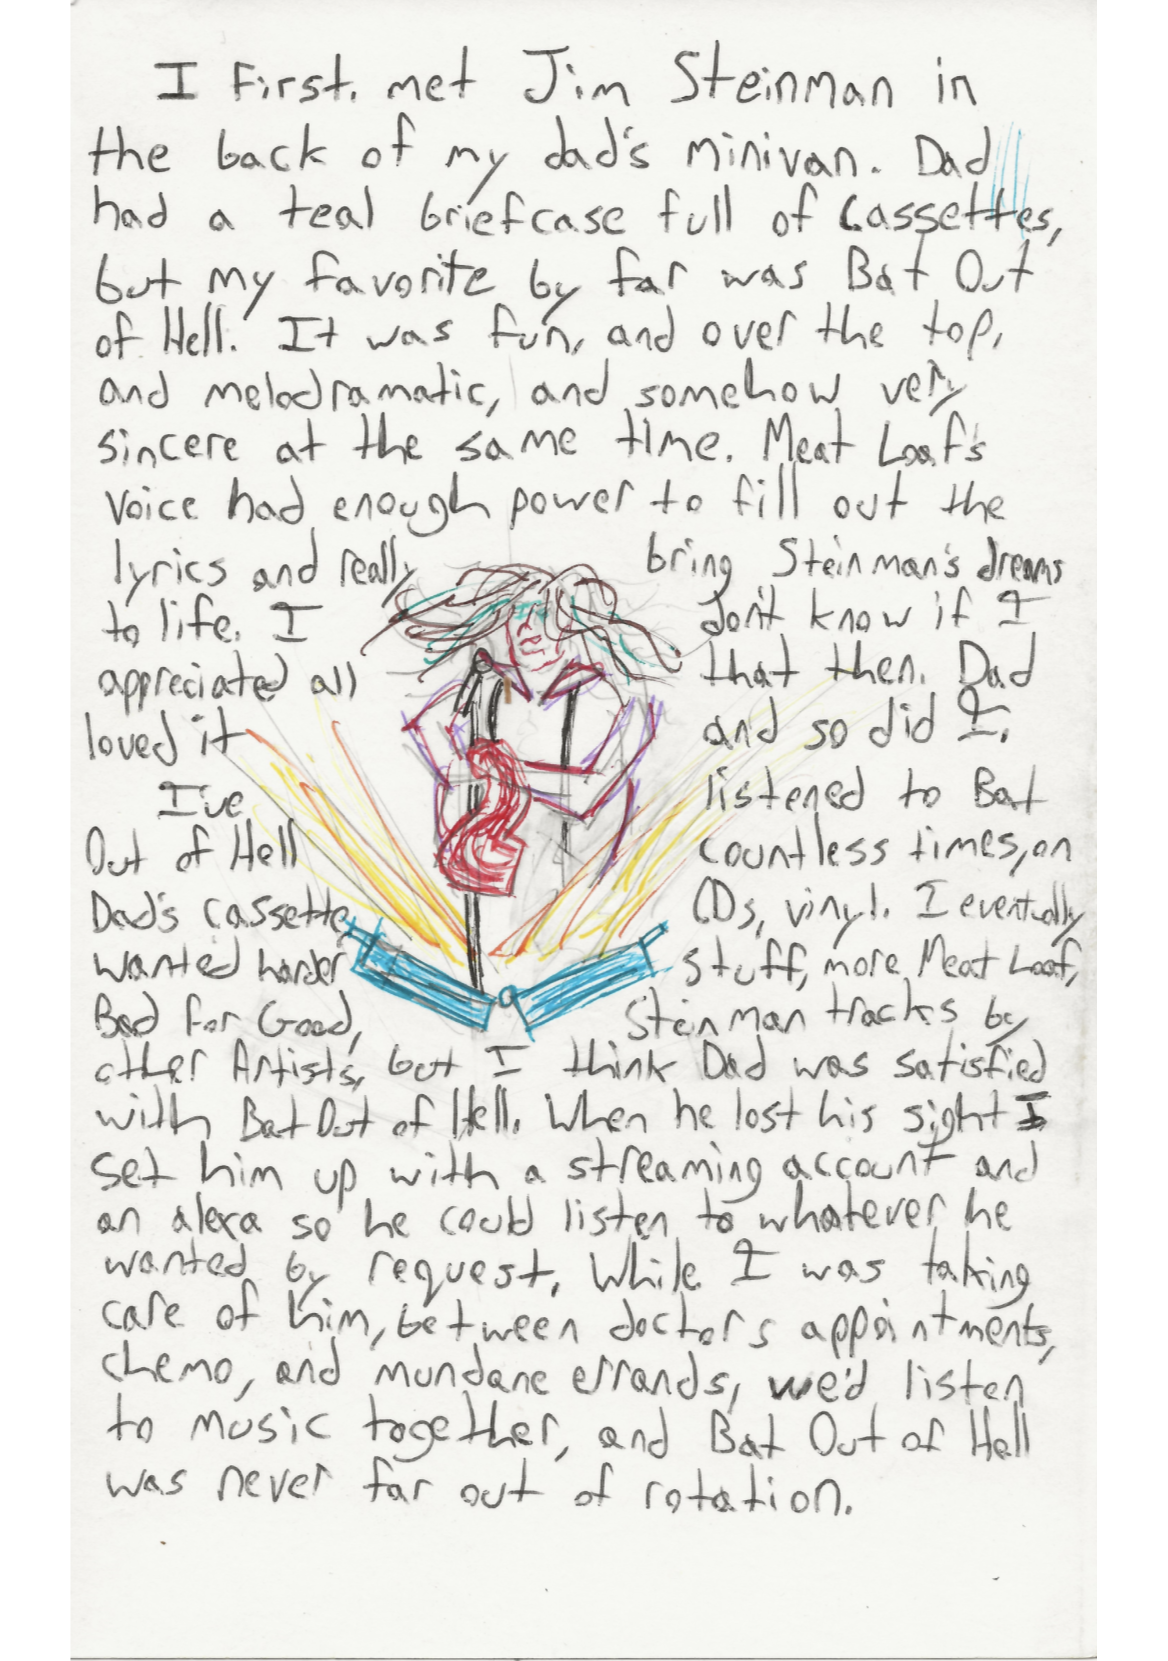 I First. met Jim Steinman in
the back of my dad's minivan. Dad
had a teal briefcase full of Cassettes,
but my favorite by far was Bat Out
of Hell. It was fun, and over the top,
and melodramatic, and somehow very
sincere at the same time. Meat Loaf's
Voice had enough power to fill out the
lyrics and really bring Steinman's dreams
to life. I don't know if I
appreciated all that then. Dad
loved it and so did I.
I've listened to Bat
Out of Hell countless times, on
Dad's cassette, CDs, vinyl. I eventually
wanted harder stuff, more Meat Loaf,
Bad for Good, Steinman tracks by
other Artists, but I think Dad was satisfied
with Bat Out of Hell. When he lost his sight I
set him up with a streaming account and
an alexa so he could listen to whatever he
wanted by request. While I was taking
care of him, between doctors appointments,
chemo, and mundane errands, we'd listen
to music together, and Bat Out of Hell
was never far out of rotation.